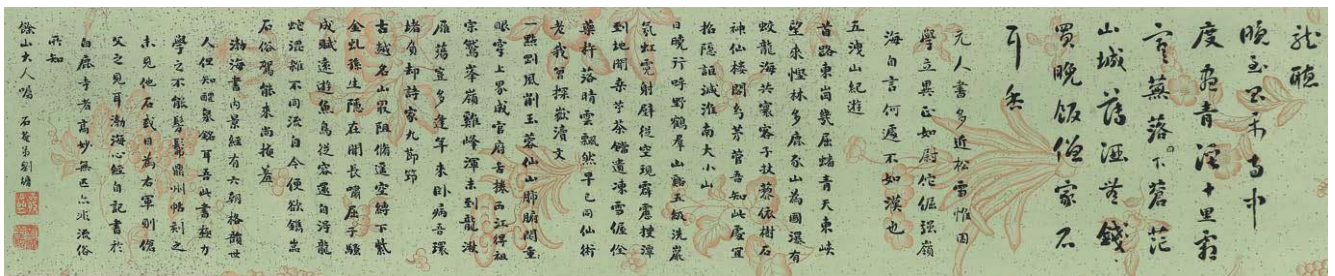 聽
晚至昌平寺中
度青溪十里霜
蕪落下蒼茫
山城薄酒無錢
買晚飯僧家石
耳香
元人書多近松雪惟困
學立異正如尉佗倔强嶺
海自言何遽不如漢也
五洩山紀遊
昔路東崗幾屈蟠青天東峽
望來慳林多鹿豕山為國瀑有
蛟龍海共寰客子扶藜依樹石
神仙樓閣鳥茅菅吾知此處宜
招隱詎減淮南大小山
日曉行呼野鶴羣山豁五級洗巖
氛虹霓射壁從空現霹靂搜潭
到地聞桑苧茶鐺遺凍雪偓佺
藥杵落晴雲飄然早已同仙術
老我曾探嶽瀆文
一點剛風削玉蓉仙山肺腑閟重
眼穿上界盛官府舌捲西江得祖
宗鷲峯嶺雞峰渾未到龍湫
雁蕩豈多逢年來卧病吾環
堵負却詩家九節笻
古越名山最阻脩遥空縛下紫
金虬孫生隱在聞長嘯屈子騷
成賦遠遊魚鳥從容還自得龍
蛇混雜不同流自今便欲鐫崖
石俗駕能來尚掩羞
渤海書內景經有六朝格韻世
人但知醴泉銘耳吾此書極力
學之不能髣髴鼎州帖刻之
未見他石或目為右軍則傖
父之見耳渤海心經自記書於
白鹿寺者高妙無匹亦非流俗
所知
餘山大人囑 石菴弟劉墉